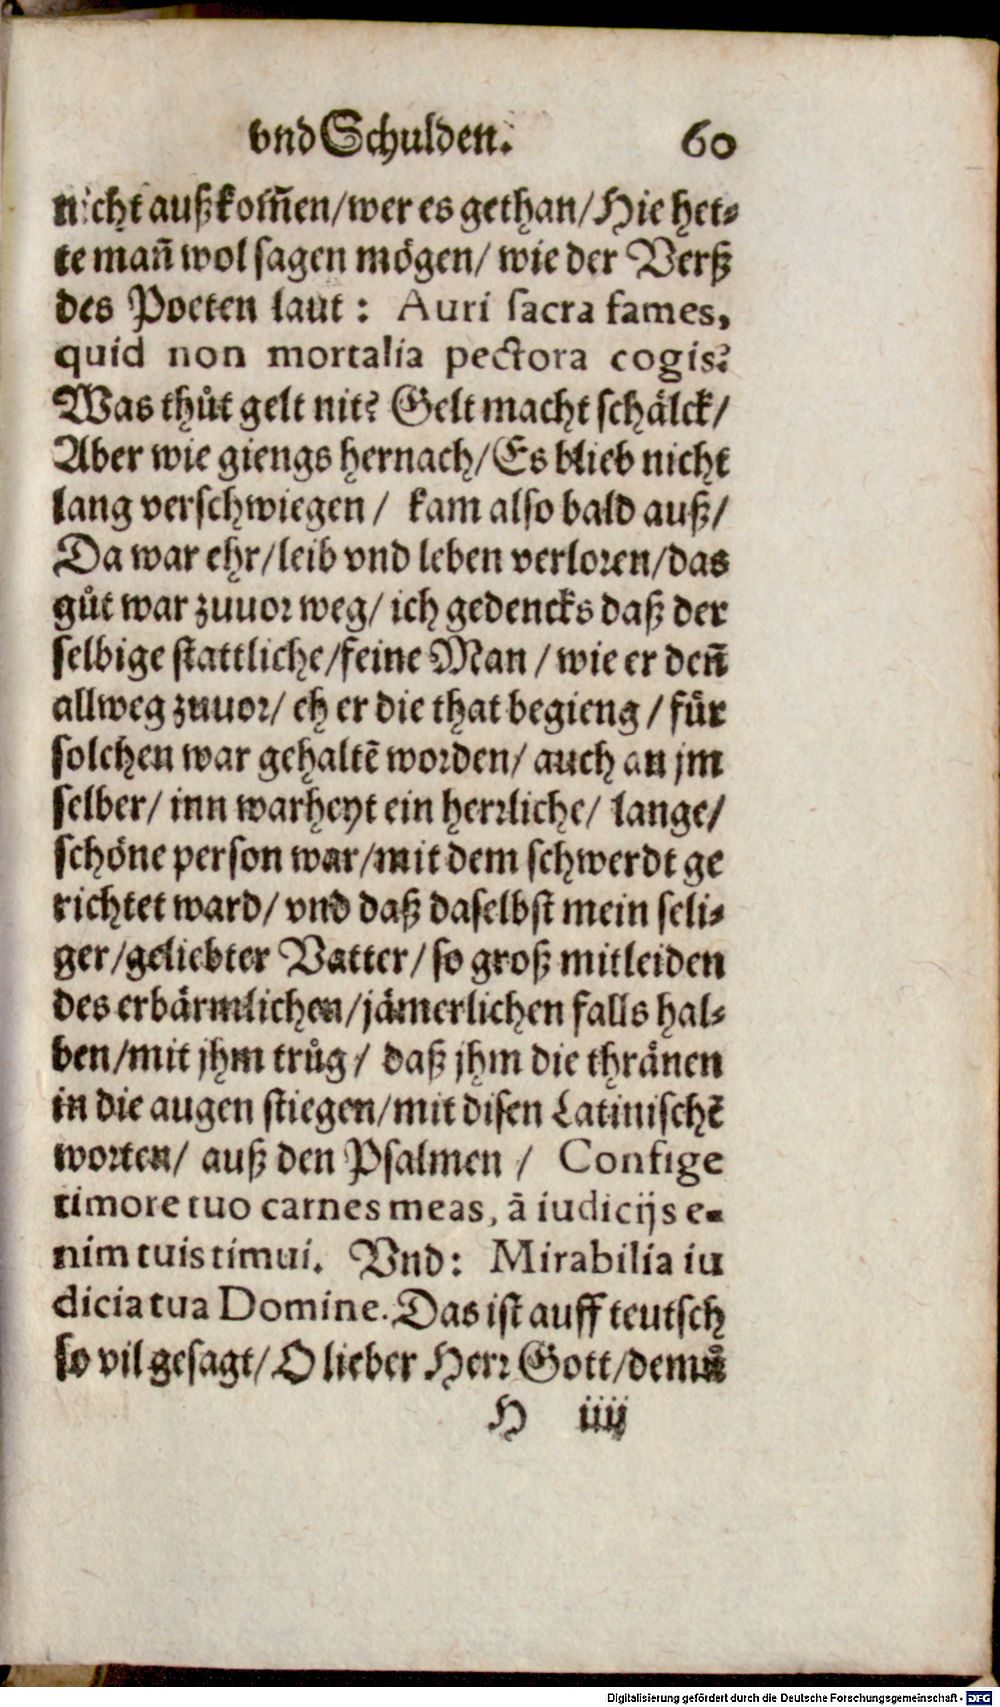 vnd Schulden. 60
nicht außkom̃en/wer es gethan/Hie het⸗
te mañ wol sagen mögen/ wie der Verß
des Poeten laut: Auri sacra fames,
quid non mortalia pectora cogis?
Was thůt gelt nit? Gelt macht schälck/
Aber wie giengs hernach/Es blieb nicht
lang verschwiegen/ kam also bald auß/
Da war ehr/leib vnd leben verloren/das
gůt war zuuor weg/ ich gedencks daß der
selbige stattliche/feine Man/wie er deñ
allweg zuuor/ eh er die that begieng/für
solchen war gehaltē worden/ auch an jm
selber/ inn warheyt ein herrliche/ lange/
schöne person war/mit dem schwerdt ge
richtet ward/ vnd daß daselbst mein seli⸗
ger/geliebter Vatter/so groß mitleiden
des erbärmlichen/jämerlichen falls hal⸗
ben/mit jhm trůg/ daß jhm die thränen
in die augen stiegen/mit disen Latinischē
worten/ auß den Psalmen/ Confige
timore tuo carnes meas, ā iudicijs e⸗
nim tuis timui. Vnd: Mirabilia iu
dicia tua Domine. Das ist auff teutsch
so vil gesagt/O lieber Herr Gott/
H iiij
Digitalisierung gefördert durch die Deutsche Forschungsgemeinschaft - DFG